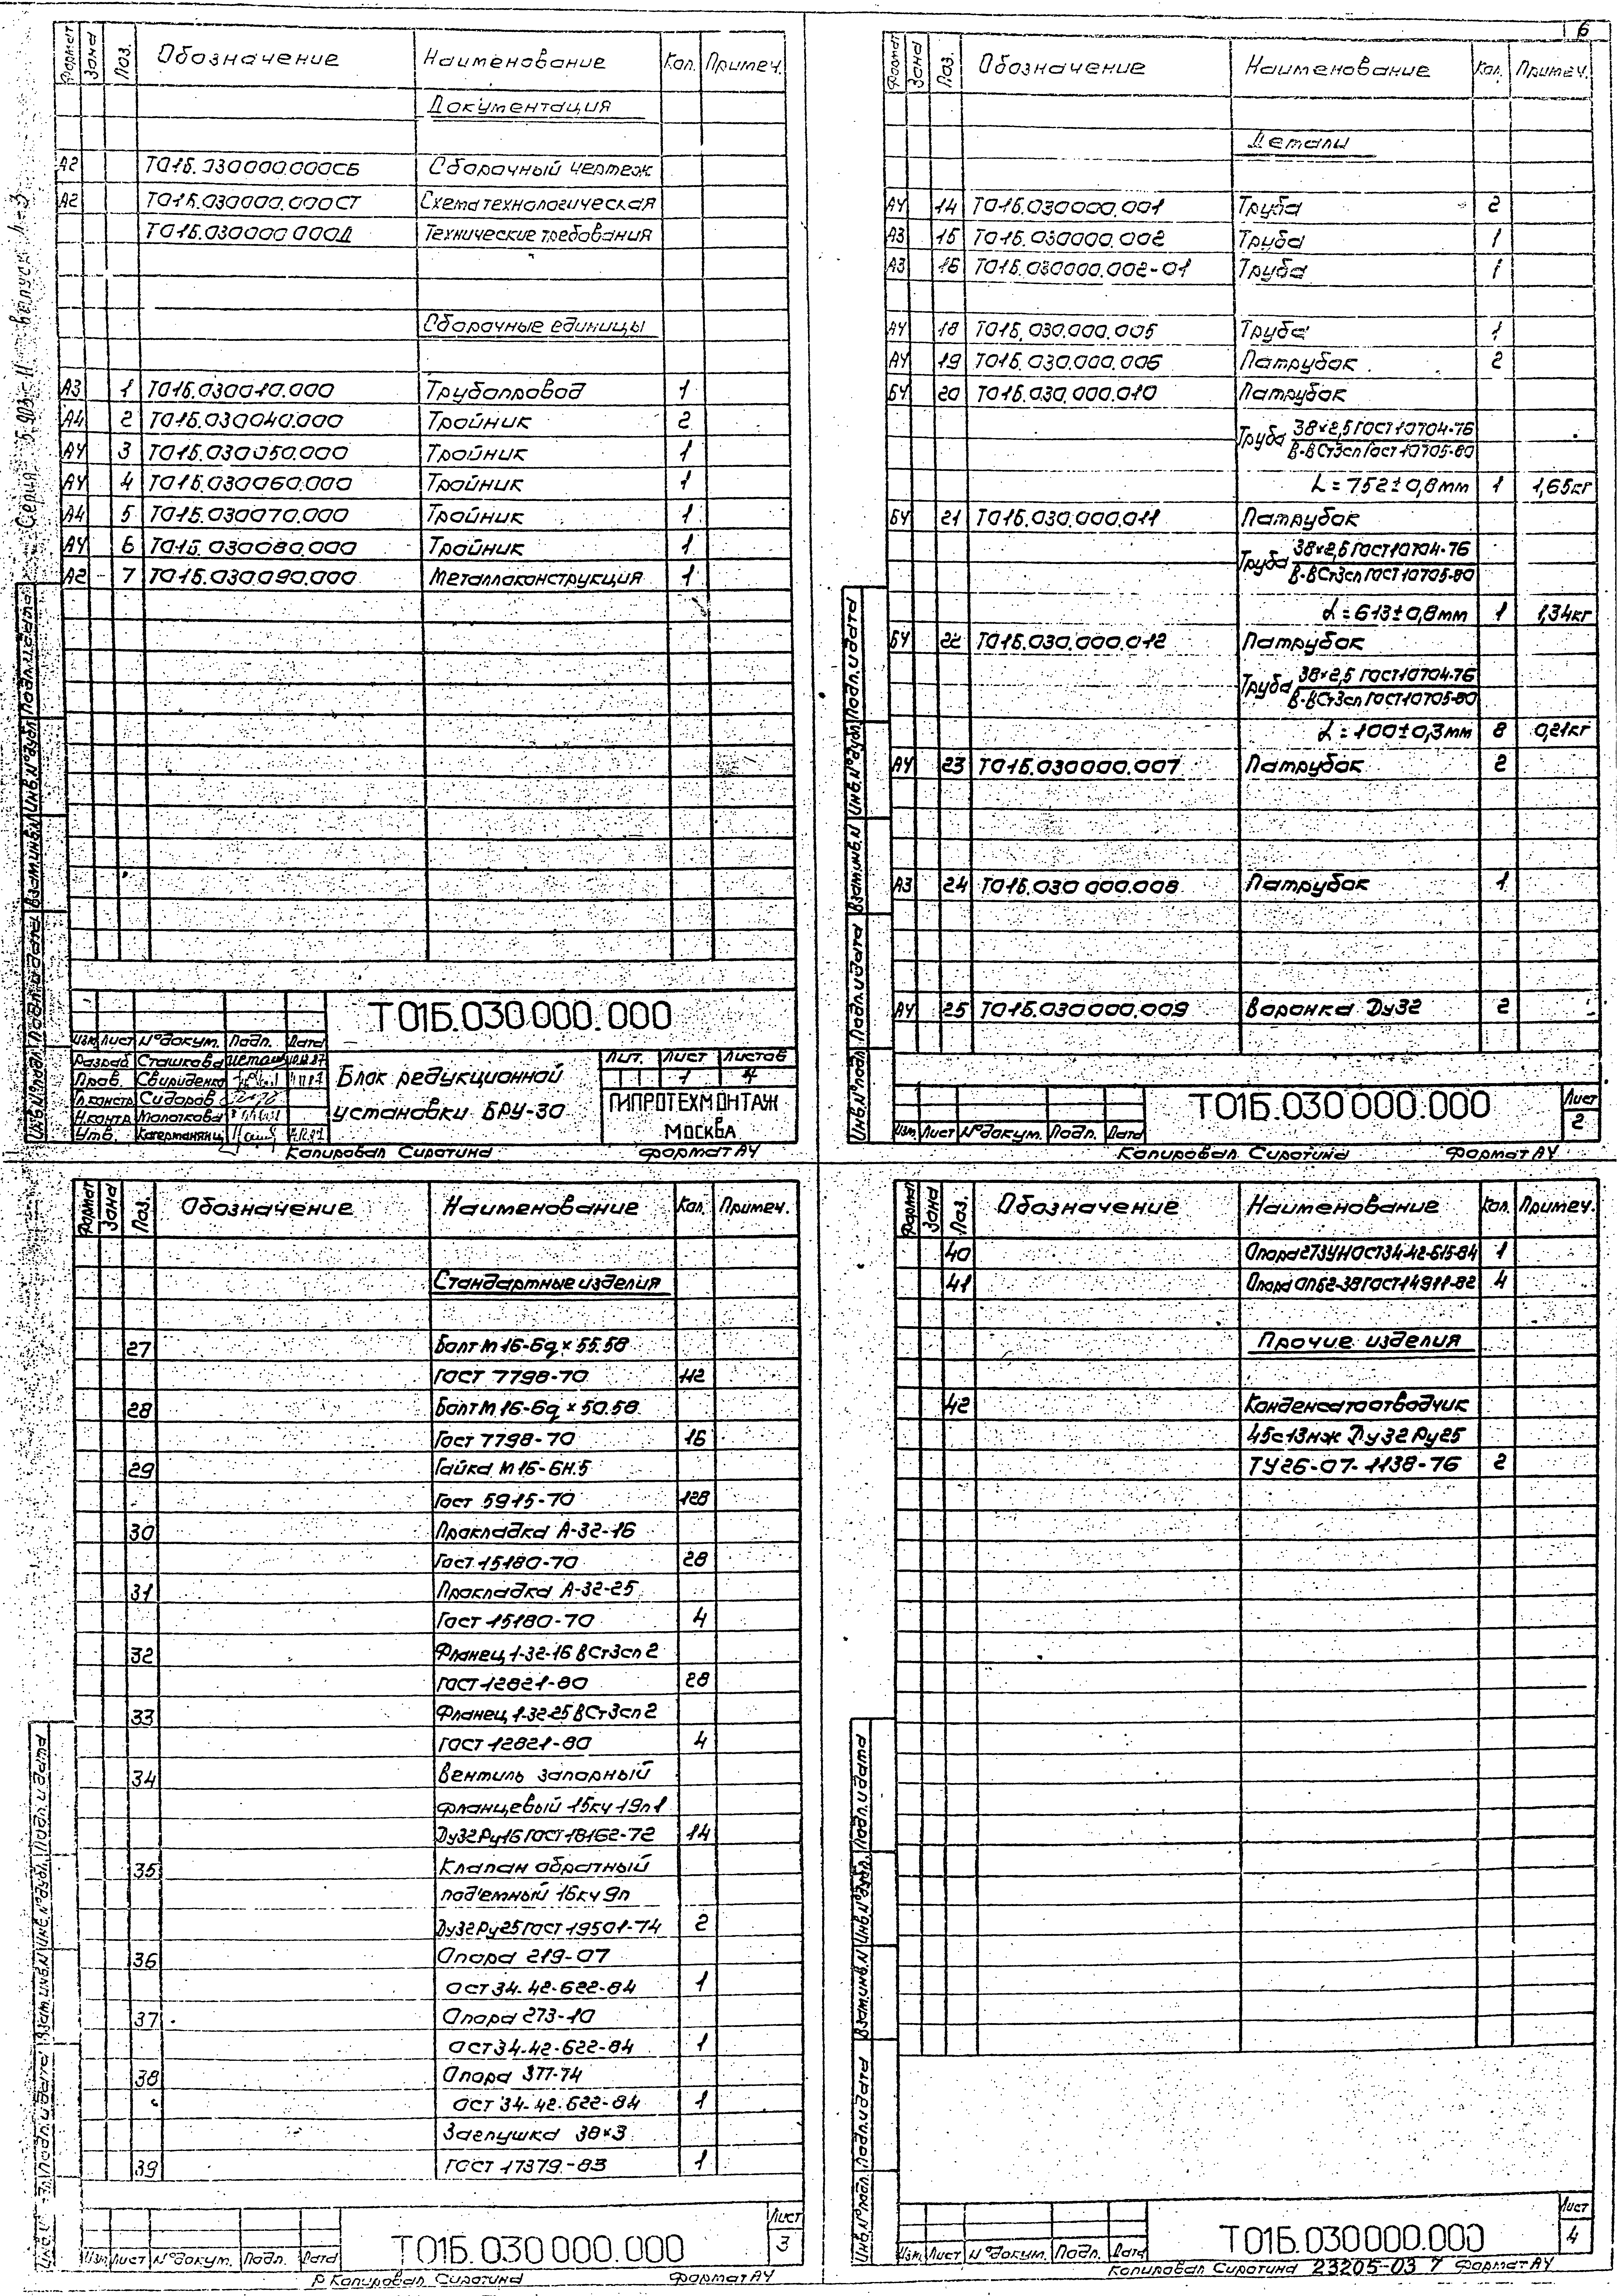 6
Формат Зона Поз. Обозначение Наименование Кол. Примеч.
Документация
А2 Т01Б.030000.000СБ Сборочный чертеж
А2 Т01Б.030000.000СТ Схема технологическая
Т01Б.030000.000Д Технические требования
Сборочные единицы
А3 1 Т01Б.030010.000 Трубопровод 1
А4 2 Т01Б.030040.000 Тройник 2
А4 3 Т01Б.030050.000 Тройник 1
А4 4 Т01Б.030060.000 Тройник 1
А4 5 Т01Б.030070.000 Тройник 1
А4 6 Т01Б.030080.000 Тройник 1
А2 7 Т01Б.030090.000 Металлоконструкция 1
Серия 5.903-11 выпуск 4-3
Инв.№подл. Подп. и дата Взам.инв.№ Инв.№дубл. Подп. и дата
Т01Б.030000.000
Изм. Лист №докум. Подп. Дата
Разраб. Сташкова
Пров. Свириденко
Гл.констр. Сидоров
Н.контр. Молоткова
Утв.
Блок редукционной
установки БРУ-30
Лит. Лист Листов
1 4
ГИПРОТЕХМОНТАЖ
МОСКВА
Копировал Сиротина Формат А4
Формат Зона Поз. Обозначение Наименование Кол. Примеч.
Детали
А4 14 Т01Б.030000.001 Труба 2
А3 15 Т01Б.030000.002 Труба 1
А3 16 Т01Б.030000.002-01 Труба 1
А4 18 Т01Б.030.000.005 Труба 1
А4 19 Т01Б.030.000.006 Патрубок 2
БЧ 20 Т01Б.030.000.010 Патрубок
Труба 38×2,5 ГОСТ 10704-76
В-ВСт3сп ГОСТ 10705-80
L=752±0,8мм 1 1,65кг
БЧ 21 Т01Б.030.000.011 Патрубок
Труба 38×2,5 ГОСТ 10704-76
В-ВСт3сп ГОСТ 10705-80
L=613±0,8мм 1 1,34кг
БЧ 22 Т01Б.030.000.012 Патрубок
Труба 38×2,5 ГОСТ 10704-76
В-ВСт3сп ГОСТ 10705-80
L=100±0,3мм 8 0,21кг
А4 23 Т01Б.030000.007 Патрубок 2
А3 24 Т01Б.030 000.008 Патрубок 1
А4 25 Т01Б.030000.009 Воронка Ду32 2
Инв.№подл. Подп. и дата Взам.инв.№ Инв.№дубл. Подп. и дата
Т01Б.030000.000
Лист
2
Изм. Лист №докум. Подп. Дата
Копировал Сиротина Формат А4
Формат Зона Поз. Обозначение Наименование Кол. Примеч.
Стандартные изделия
27 Болт М16-6g×55.58
ГОСТ 7798-70 112
28 Болт М16-6g×50.58
ГОСТ 7798-70 16
29 Гайка М16-6Н.5
ГОСТ 5915-70 128
30 Прокладка А-32-16
ГОСТ 15180-70 28
31 Прокладка А-32-25
ГОСТ 15180-70 4
32 Фланец 1-32-16 ВСт3сп2
ГОСТ 12821-80 28
33 Фланец 1-32-25 ВСт3сп2
ГОСТ 12821-80 4
34 Вентиль запорный
фланцевый 15кч19п1
Ду32 Ру16 ГОСТ 18162-72 14
35 Клапан обратный
под'емный 16кч9п
Ду32 Ру25 ГОСТ 19501-74 2
36 Опора 219-07
ОСТ 34.42-622-84 1
37 Опора 273-10
ОСТ 34-42-622-84 1
38 Опора 377-74
ОСТ 34-42.622-84 1
Заглушка 38×3
39 ГОСТ 17379-83 1
Подп. и дата Взам.инв.№ Инв.№дубл. Подп. и дата
Т01Б.030000.000
Лист
3
Изм. Лист №докум. Подп. Дата
Копировал Сиротина Формат А4
Формат Зона Поз. Обозначение Наименование Кол. Примеч.
40 Опора 273УН ОСТ34-42-615-84 1
41 Опора ОПБ2-38 ГОСТ 14911-82 4
Прочие изделия
42 Конденсатоотводчик
45с13нж Ду32 Ру25
ТУ26-07-1138-76 2
Инв.№подл. Подп. и дата Взам.инв.№ Инв.№дубл. Подп. и дата
Т01Б.030000.000
Лист
4
Изм. Лист №докум. Подп. Дата
Копировал Сиротина 23205-03 7 Формат А4